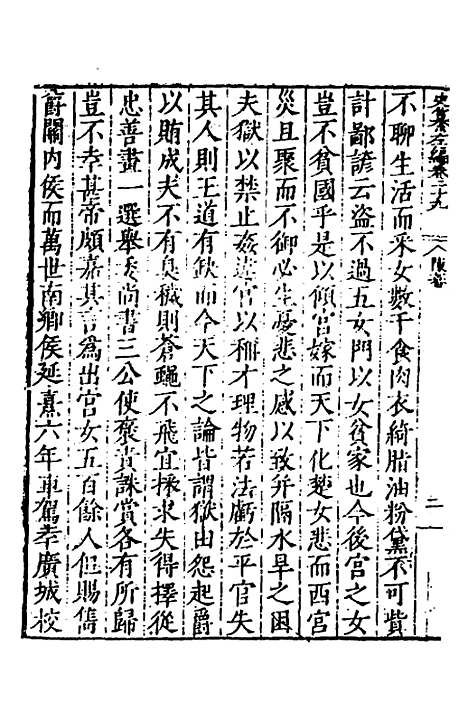 史纂左編卷二十九
陳蕃
二
不聊生活而采女數千食肉衣綺脂油粉黛不可貲
計鄙諺云盜不過五女門以女貧家也今後宮之女
豈不貧國乎是以傾宮嫁而天下化楚女悲而西宮
災且聚而不御必生憂悲之感以致并隔水旱之困
夫獄以禁止姦違官以稱才理物若法虧於平官失
其人則王道有缺而今天下之論皆謂獄由怨起爵
以賄成夫不有臭穢則蒼蠅不飛宜採求失得擇從
忠善畫一選舉委尚書三公使褒責誅賞各有所歸
豈不幸甚帝頗嘉其言為出宮女五百餘人但賜雋
爵關內侯而萬世南鄉侯延熹六年車駕幸廣城校